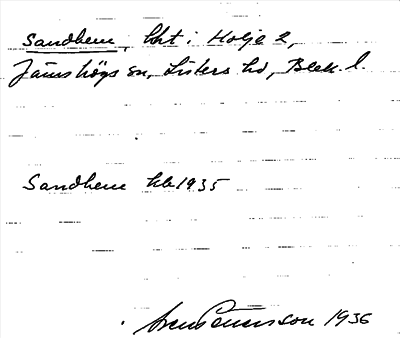 Sandhem, bht i Holje 2,
Jämshögs sn, Listers hd, Blek. l.
Sandhem hb 1935
Sven Benson 1936